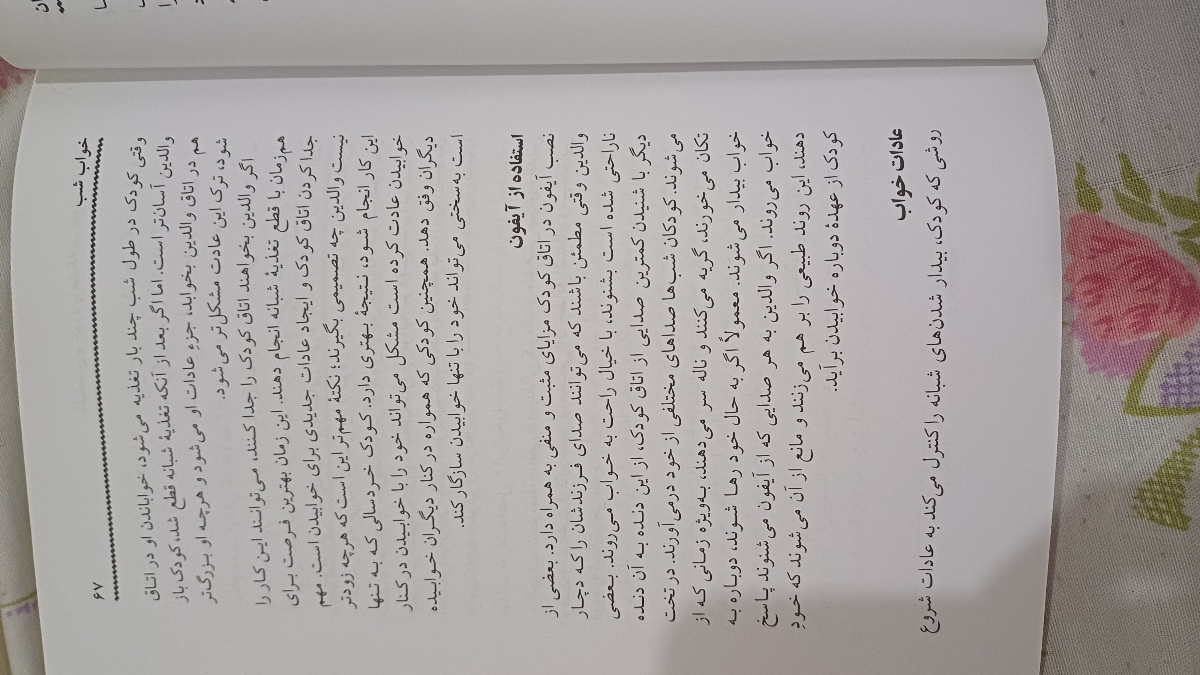 خواب شب
۶۷
وقتی کودک در طول شب چند بار تغذیه می‌شود، خواباندن او در اتاق
والدین آسان‌تر است. اما اگر بعد از آنکه تغذیهٔ شبانه قطع شد، کودک باز
هم در اتاق والدین بخوابد، جزءِ عادات او می‌شود و هرچه او بزرگ‌تر
شود، ترک این عادت مشکل‌تر می‌شود.
اگر والدین بخواهند اتاق کودک را جدا کنند، می‌توانند این کار را
هم‌زمان با قطع تغذیهٔ شبانه انجام دهند. این زمان بهترین فرصت برای
جدا کردن اتاق کودک و ایجاد عادات جدیدی برای خوابیدن است. مهم
نیست والدین چه تصمیمی بگیرند؛ نکتهٔ مهم‌تر این است که هرچه زودتر
این کار انجام شود، نتیجهٔ بهتری دارد. کودک خردسالی که به تنها
خوابیدن عادت کرده است مشکل می‌تواند خود را با خوابیدن در کنار
دیگران وفق دهد. همچنین کودکی که همواره در کنار دیگران خوابیده
است به‌سختی می‌تواند خود را با تنها خوابیدن سازگار کند.
استفاده از آیفون
نصب آیفون در اتاق کودک مزایای مثبت و منفی به همراه دارد. بعضی از
والدین وقتی مطمئن باشند که می‌توانند صدای فرزندشان را که دچار
ناراحتی شده است بشنوند، با خیال راحت به خواب می‌روند. بعضی
دیگر با شنیدن کمترین صدایی از اتاق کودک، از این دنده به آن دنده
می‌شوند. کودکان شب‌ها صداهای مختلفی از خود درمی‌آورند. در تخت
تکان می‌خورند، گریه می‌کنند و ناله سر می‌دهند، به‌ویژه زمانی که از
خواب بیدار می‌شوند. معمولاً اگر به حال خود رها شوند، دوباره به
خواب می‌روند. اگر والدین به هر صدایی که از آیفون می‌شنوند پاسخ
دهند، این روند طبیعی را بر هم می‌زنند و مانع از آن می‌شوند که خودِ
کودک از عهدهٔ دوباره خوابیدن برآید.
عادات خواب
روشی که کودک، بیدار شدن‌های شبانه را کنترل می‌کند به عادات شروع